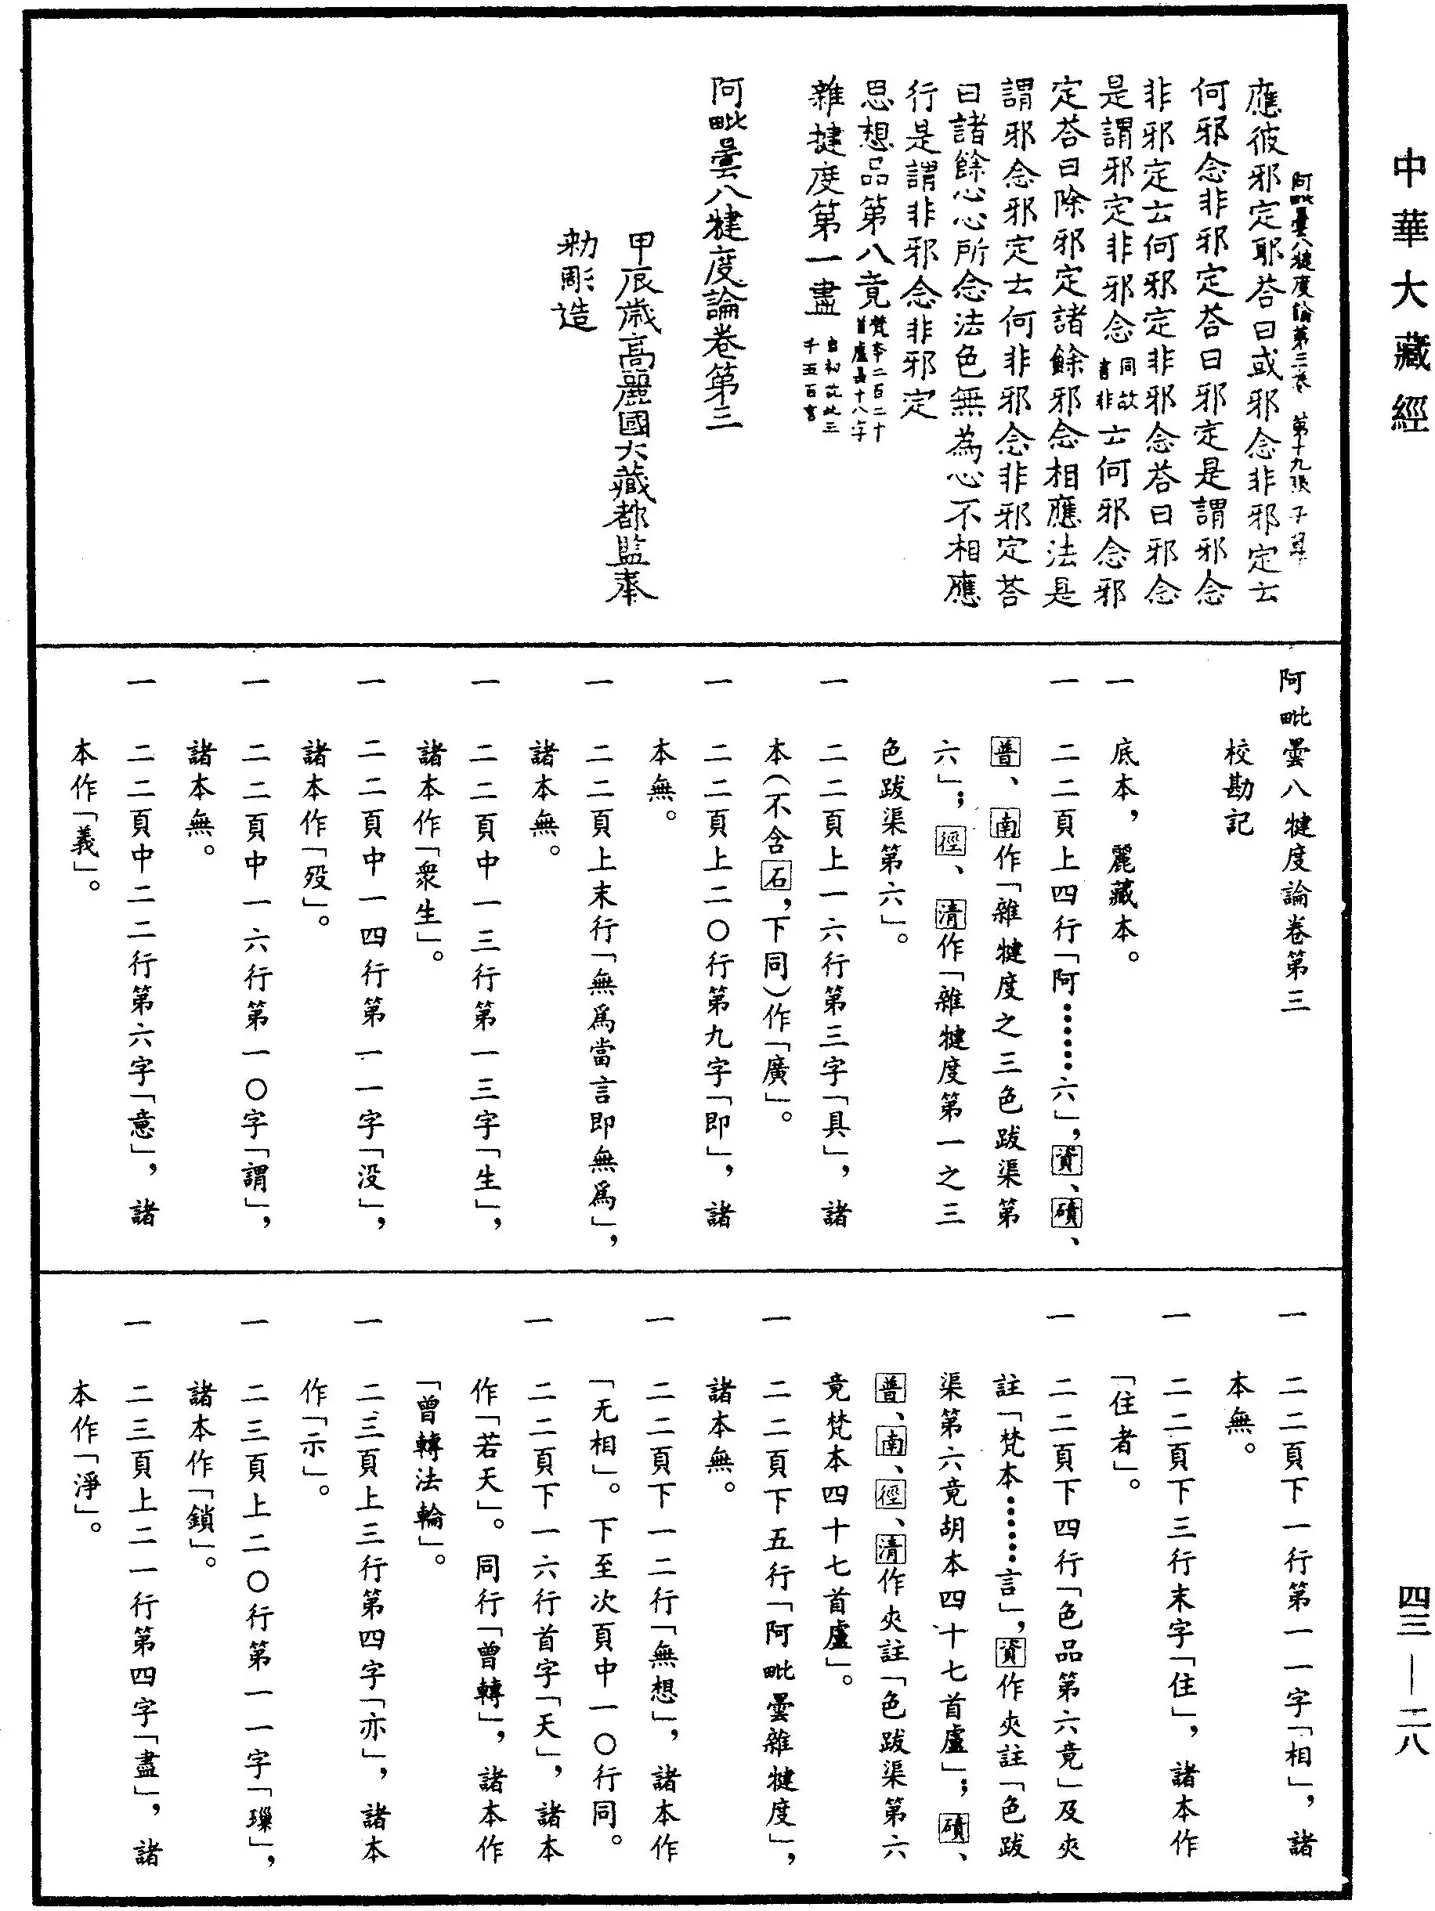 中華大藏經
阿毗曇八犍度論第三卷 第十九張 子
應彼邪定耶荅曰或邪念非邪定云
何邪念非邪定荅曰邪定是謂邪念
非邪定云何邪定非邪念荅曰邪念
是謂邪定非邪念同故言非云何邪念邪
定荅曰除邪定諸餘邪念相應法是
謂邪念邪定云何非邪念非邪定荅
曰諸餘心心所念法色無為心不相應
行是謂非邪念非邪定
思想品第八竟梵本二百二十首盧長十八字
雜揵度第一盡
阿毗曇八犍度論卷第三
甲辰歲高麗國大藏都監奉
勑彫造
阿毗曇八犍度論卷第三
校勘記
一 底本，麗藏本。
一 二二頁上四行「阿……六」，資、磧、
普、南作「雜犍度之三色跋渠第
六」；徑、清作「雜犍度第一之三
色跋渠第六」。
一 二二頁上一六行第三字「具」，諸
本（不含石，下同）作「廣」。
一 二二頁上二〇行第九字「即」，諸
本無。
一 二二頁上末行「無爲當言即無爲」，
諸本無。
一 二二頁中一三行第一三字「生」，
諸本作「衆生」。
一 二二頁中一四行第一一字「没」，
諸本作「歿」。
一 二二頁中一六行第一〇字「謂」，
諸本無。
一 二二頁中二二行第六字「意」，諸
本作「義」。
一 二二頁下一行第一一字「相」，諸
本無。
一 二二頁下三行末字「住」，諸本作
「住者」。
一 二二頁下四行「色品第六竟」及夾
註「梵本……言」，資作夾註「色跋
渠第六竟胡本四十七首盧」；磧、
普、南、徑、清作夾註「色跋渠第六
竟梵本四十七首盧」。
一 二二頁下五行「阿毗曇雜犍度」，
諸本無。
一 二二頁下一二行「無想」，諸本作
「无相」。下至次頁中一〇行同。
一 二二頁下一六行首字「天」，諸本
作「若天」。同行「曾轉」，諸本作
「曾轉法輪」。
一 二三頁上三行第四字「亦」，諸本
作「示」。
一 二三頁上二〇行第一一字「璅」，
諸本作「鎖」。
一 二三頁上二一行第四字「盡」，諸
本作「淨」。
四三—二八